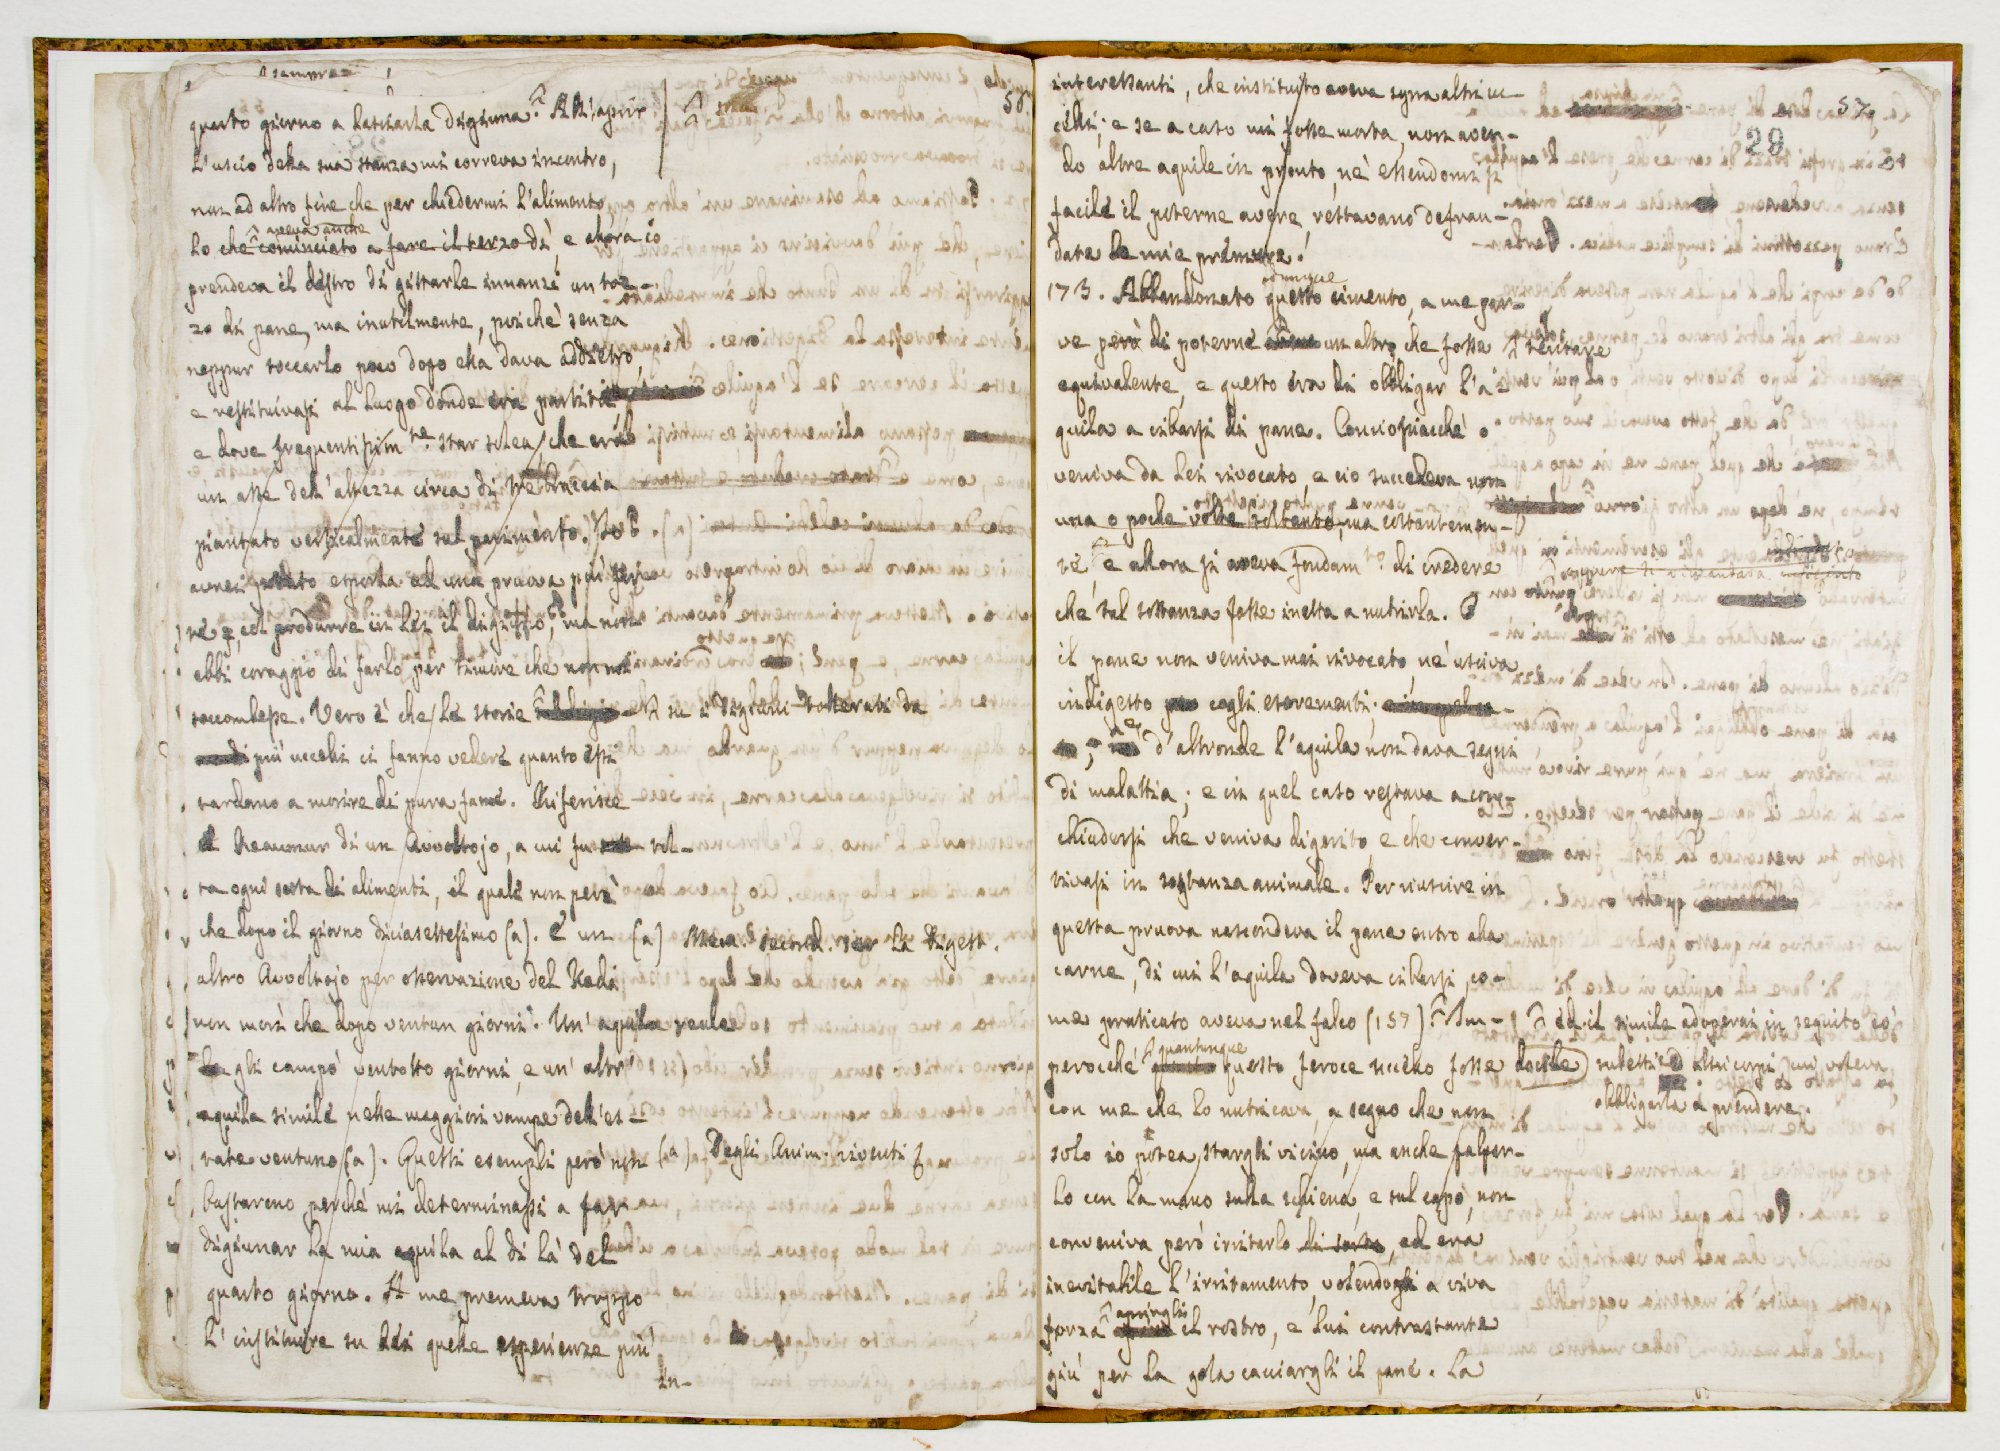 sempre
56.
quarto giorno a lasciarla digiuna. All'aprir
l'uscio della sua stanza mi correva incontro,
non ad altro fine che per chiedermi l'alimento,
aveva anche
lo che cominciato a fare il terzo dì, e allora io
prendeva il destro di gittarle innanzi un toz-
zo di pane, ma inutilmente, poichè senza
neppur toccarlo poco dopo ella dava addietro,
e restituivasi al luogo donde era partita
e dove frequentissim.te star solea, che era
un asse dell'altezza circa di tre braccia
piantato verticalmente sul pavimento. Io
avrei esporla ad una pruova più
col produrre in lei il digiuno, ma non
ebbi coraggio di farlo per timore che non mi
soccombesse. Vero è che le storie su i digiuni tollerati da
più uccelli ci fanno vedere quanto essi
tardano a morire di pura fame. Riferisce
il Reaumur di un Avvoltojo, a cui fu tol-
ta ogni sorta di alimenti, il quale non perì
che dopo il giorno diciasettesimo (a). E un
(a) Mem. second. sur la Digest.
altro Avvoltojo per osservazione del Redi
non morì che dopo ventun giorni. Un'aquila reale
gli campò ventotto giorni, e un'altr'
aquila simile nelle maggiori vampe dell'es-
tate ventuno (a). Questi esempli però non
(a) Degli Anim. viventi
bastarono perchè mi determinassi a far
digiunar la mia aquila al di là del
quarto giorno. A me premeva troppo
l'instituire su lei quelle esperienze più
in-
57.
28
interessanti, che instituito aveva sopra altri uc-
celli; e se a caso mi fosse morta, non aven-
do altre aquile in pronto, nè essendomi sì
facile il poterne avere, restavano defrau-
date le mie premure.
adunque
173. Abbandonato questo cimento, a me par-
ve però di poterne tentare un altro che fosse
equivalente, e questo era di obbligar l'a-
quila a cibarsi di pane. Conciosiacchè o
veniva da lei rivocato, e ciò succedeva non
una o poche volte soltanto, ma costantemen-
te, e allora si aveva fondam.to di credere
che tal sostanza fosse inetta a nutrirla. O
il pane non veniva mai rivocato, nè usciva
indigesto cogli escrementi;
e d'altronde l'aquila non dava segni
di malattia; e in quel caso restava a con-
chiudersi che veniva digerito, e che conver-
tivasi in sostanza animale. Per riuscire in
questa pruova nascondeva il pane entro alla
carne, di cui l'aquila doveva cibarsi, co-
me praticato aveva nel falco (157). Im-
ed il simile adoperai in seguito co'
suletti ed altri corpi, cui voleva
obbligarla a prendere.
quantunque
perocchè questo feroce uccello fosse docile
con me che lo nutricava, a segno che non
solo io potea stargli vicino, ma anche palpar-
lo con la mano sulla schiena, e sul capo, non
conveniva però irritarlo di sorta, ed era
inevitabile l'irritamento, volendogli a viva
aprirgli
forza il rostro, e lui contrastante
giù per la gola cacciargli il pane. La